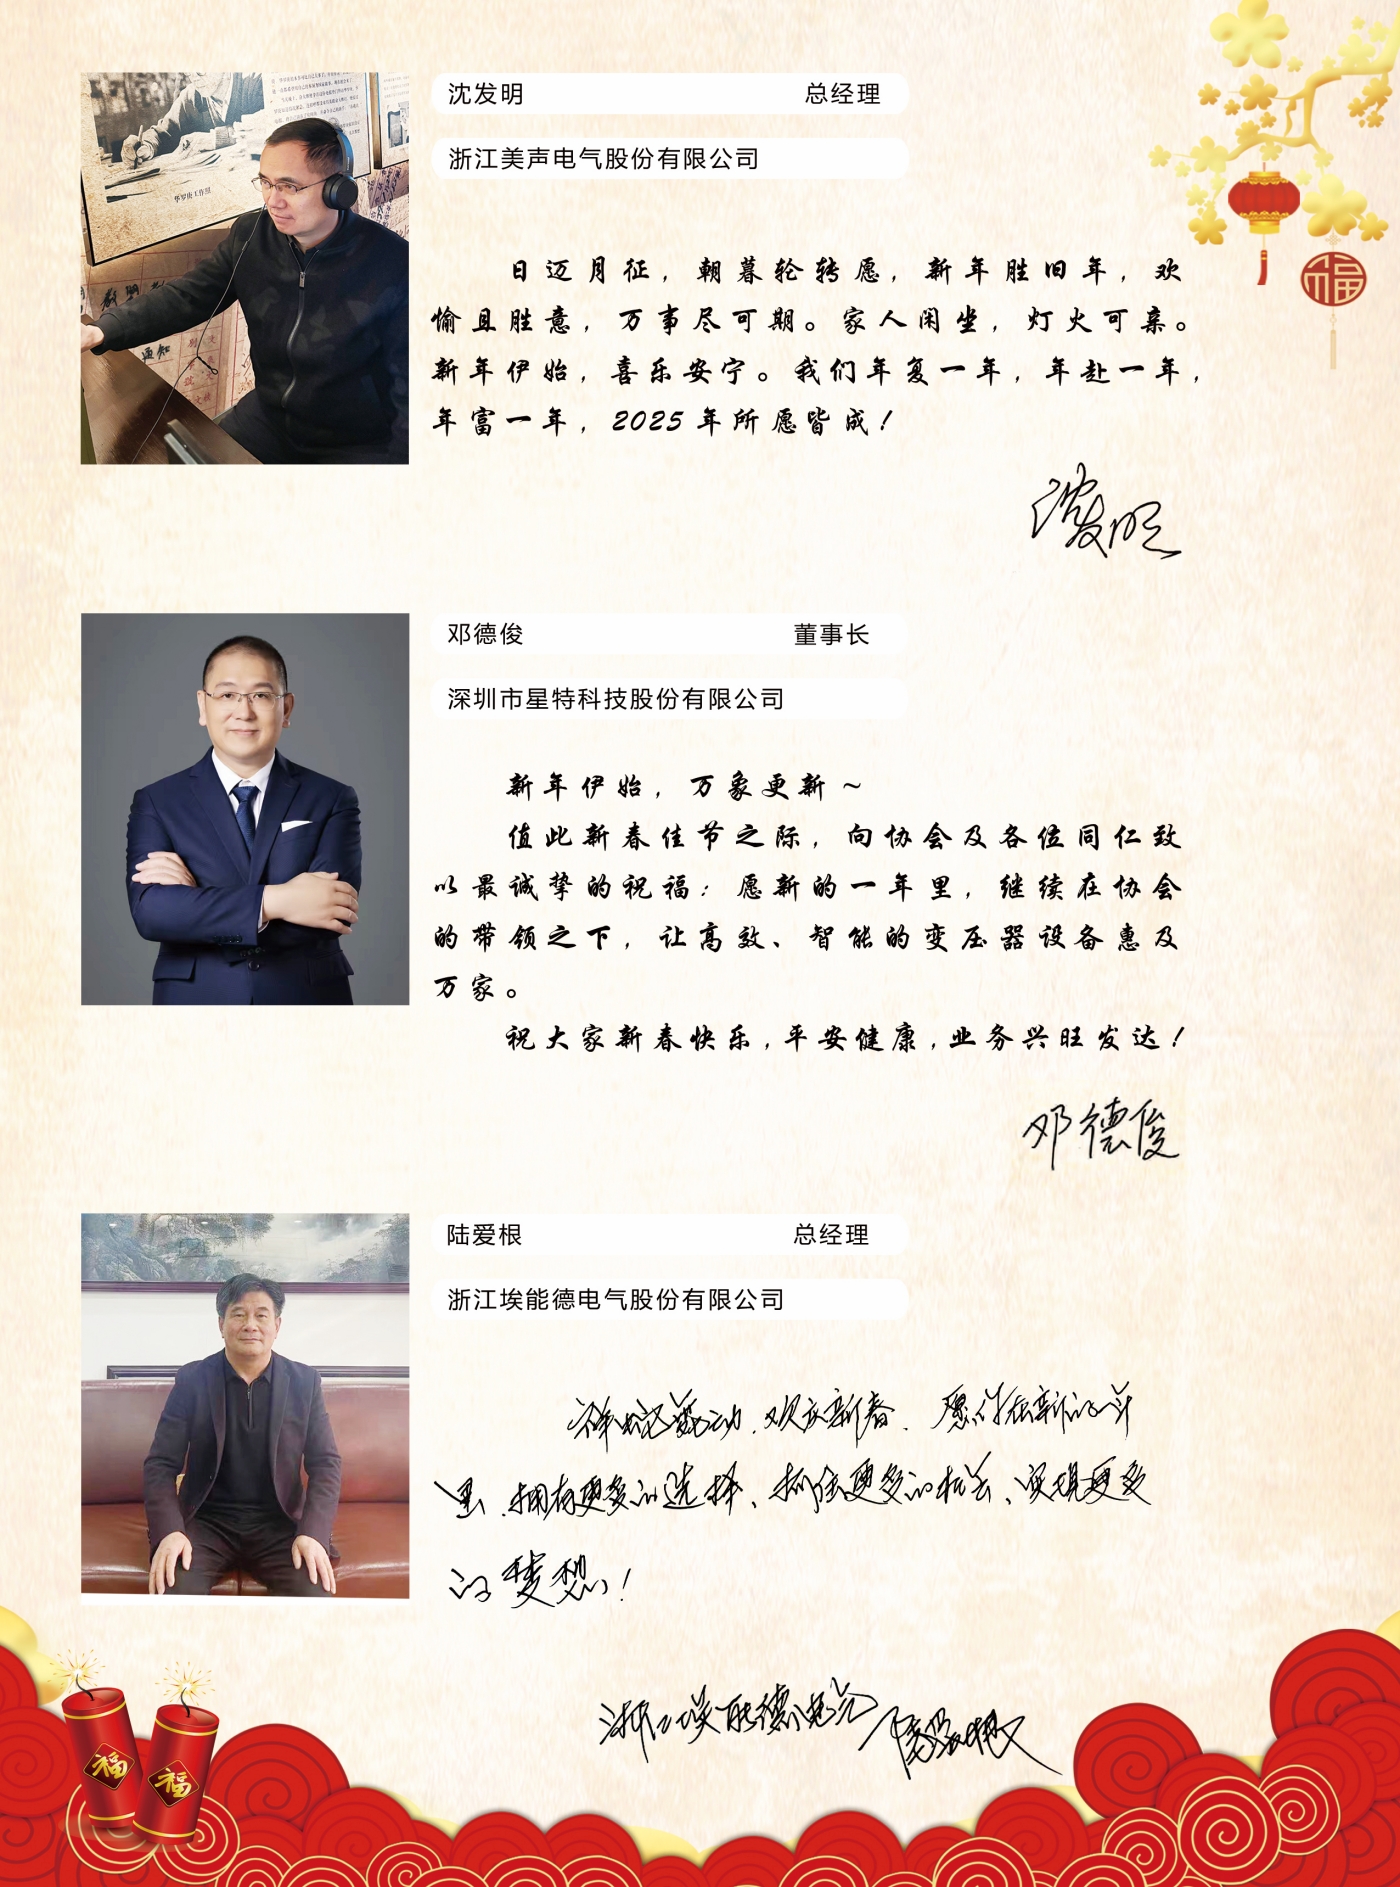 华罗庚工作组
沈发明 总经理
浙江美声电气股份有限公司
日迈月征，朝暮轮转愿，新年胜旧年，欢
愉且胜意，万事尽可期。家人闲坐，灯火可亲。
新年伊始，喜乐安宁。我们年复一年，年赴一年，
年富一年，2025年所愿皆成！
沈发明
邓德俊 董事长
深圳市星特科技股份有限公司
新年伊始，万象更新~
值此新春佳节之际，向协会及各位同仁致
以最诚挚的祝福：愿新的一年里，继续在协会
的带领之下，让高效、智能的变压器设备惠及
万家。
祝大家新春快乐,平安健康,业务兴旺发达！
邓德俊
陆爱根 总经理
浙江埃能德电气股份有限公司
祥蛇舞动.欢庆新春.愿你在新的一年
里.拥有更多的选择、抓住更多的机会、实现更多
的梦想！
浙江埃能德电气 陆爱根
福
福
福